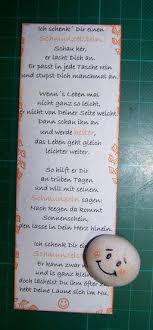 Ich schenk' Dir einen
Schmunzelstein.
Schau her,
er lacht Dich an.
Er passt in jede Tasche rein
und stupst Dich manchmal an.
Wenn's Leben mal
nicht ganz so leicht,
er nicht von Deiner Seite weicht.
Dann schau ihn an
und werde heiter,
das Leben geht gleich
leichter weiter.
So hilft er Dir
an trüben Tagen
und will mit seinen
Schmunzeln sagen:
Nach Regen da kommt
Sonnenschein,
den lasse in Dein Herz hinein.
Ich schenk Dir einen
Schmunzelstein
Er kann zwar
und is ganz klein
doch lachst Du ihn öfter an
hebt Deine Laune sich im Nu.